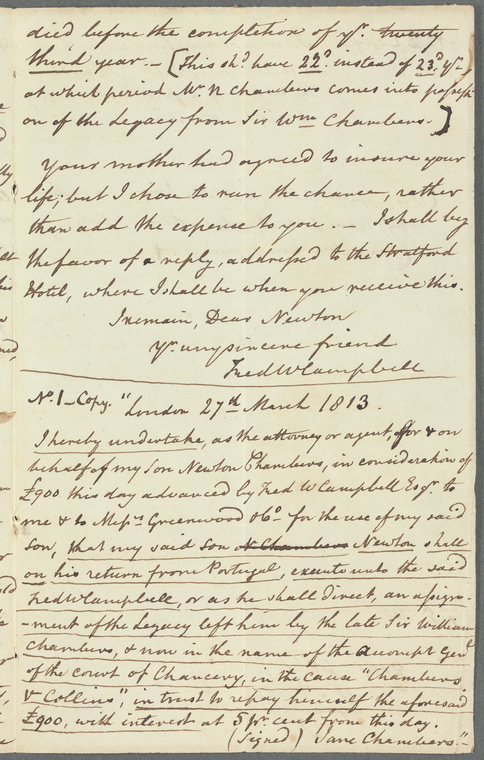 died before the completion of yr. twenty
third year. — [This shd. have 22d. instead of 23d. yr.
at which period Mr. N Chambers comes into possessi
on of the Legacy from Sir Wm Chambers.]
Your mother had agreed to insure your
life; but I chose to run the chance, rather
than add the expense to you. — I shall beg
the favor of a reply, addressed to the Stratford
Hotel, where I shall be when you receive this.
I remain, Dear Newton
Yr. very sincere friend
Fred W Campbell
No. 1 — Copy. "London 27th March 1813.
I hereby undertake, as the attorney or agent, for & on
behalf of my Son Newton Chambers, in consideration of
£900 this day advanced by Fred W Campbell Esqr. to
me & to Messrs Greenwood & Co. for the use of my said
Son, that my said Son N Chambers Newton shall
on his return from Portugal, execute unto the said
Fred W Campbell, or as he shall direct, an assign-
-ment of the Legacy left him by the late Sir William
Chambers, & now in the name of the Accompt Genl.
of the court of Chancery, in the cause "Chambers
V Collins", in trust to repay himself the aforesaid
£900, with interest at 5 pr cent from this day.
(Signed) Jane Chambers."